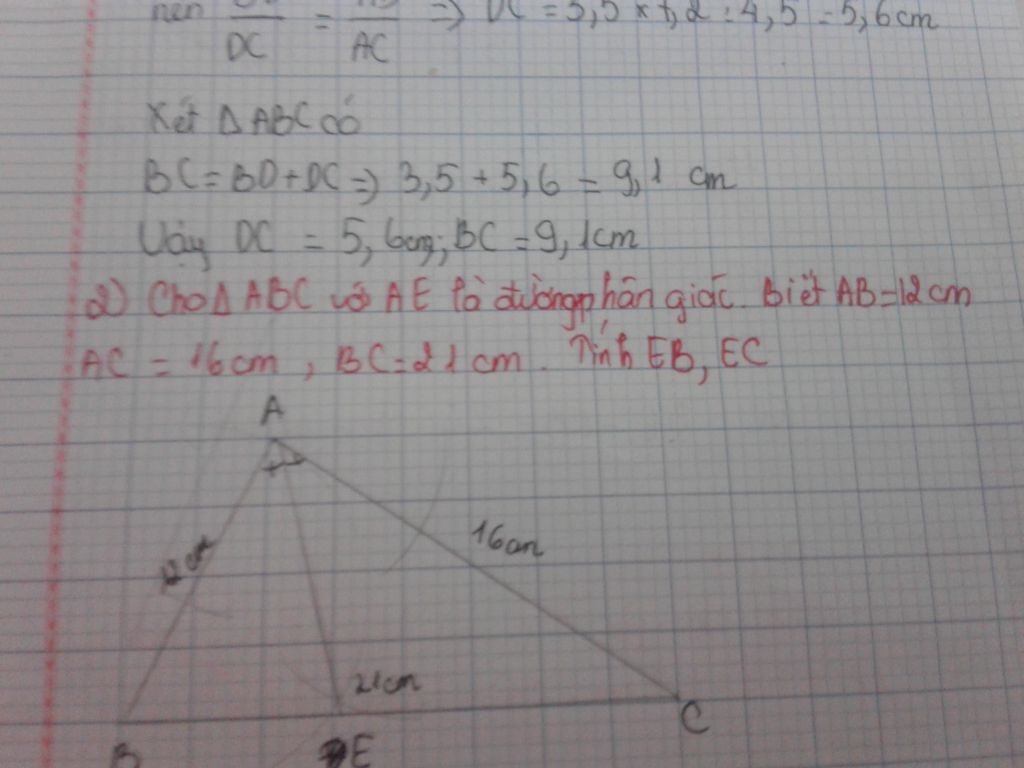 nên
DC = AC ⇒ DC = 3,5 × 7,2 : 4,5 = 5,6cm
Xét Δ ABC có
BC = BD + DC ⇒ 3,5 + 5,6 = 9,1 cm
Vậy DC = 5,6cm; BC = 9,1cm
2) Cho Δ ABC với AE là đường phân giác. Biết AB = 12 cm
AC = 16 cm, BC = 21 cm. Tính EB, EC
A
16cm
12 cm
21cm
B
E
C